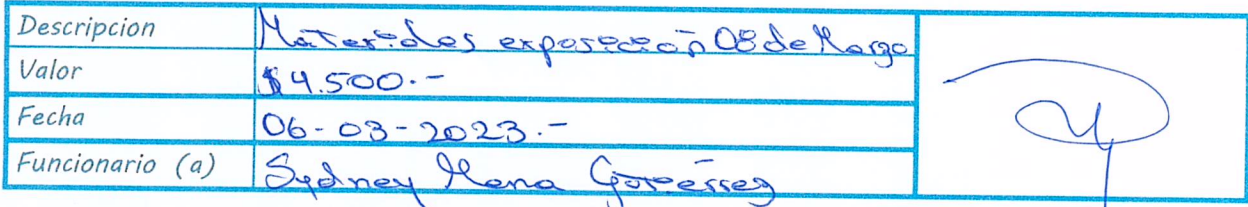 Descripcion Materiales exposición 08 de Marzo
Valor $4.500.-
Fecha 06-03-2023.-
Funcionario (a) Sydney Mena Gutierrez